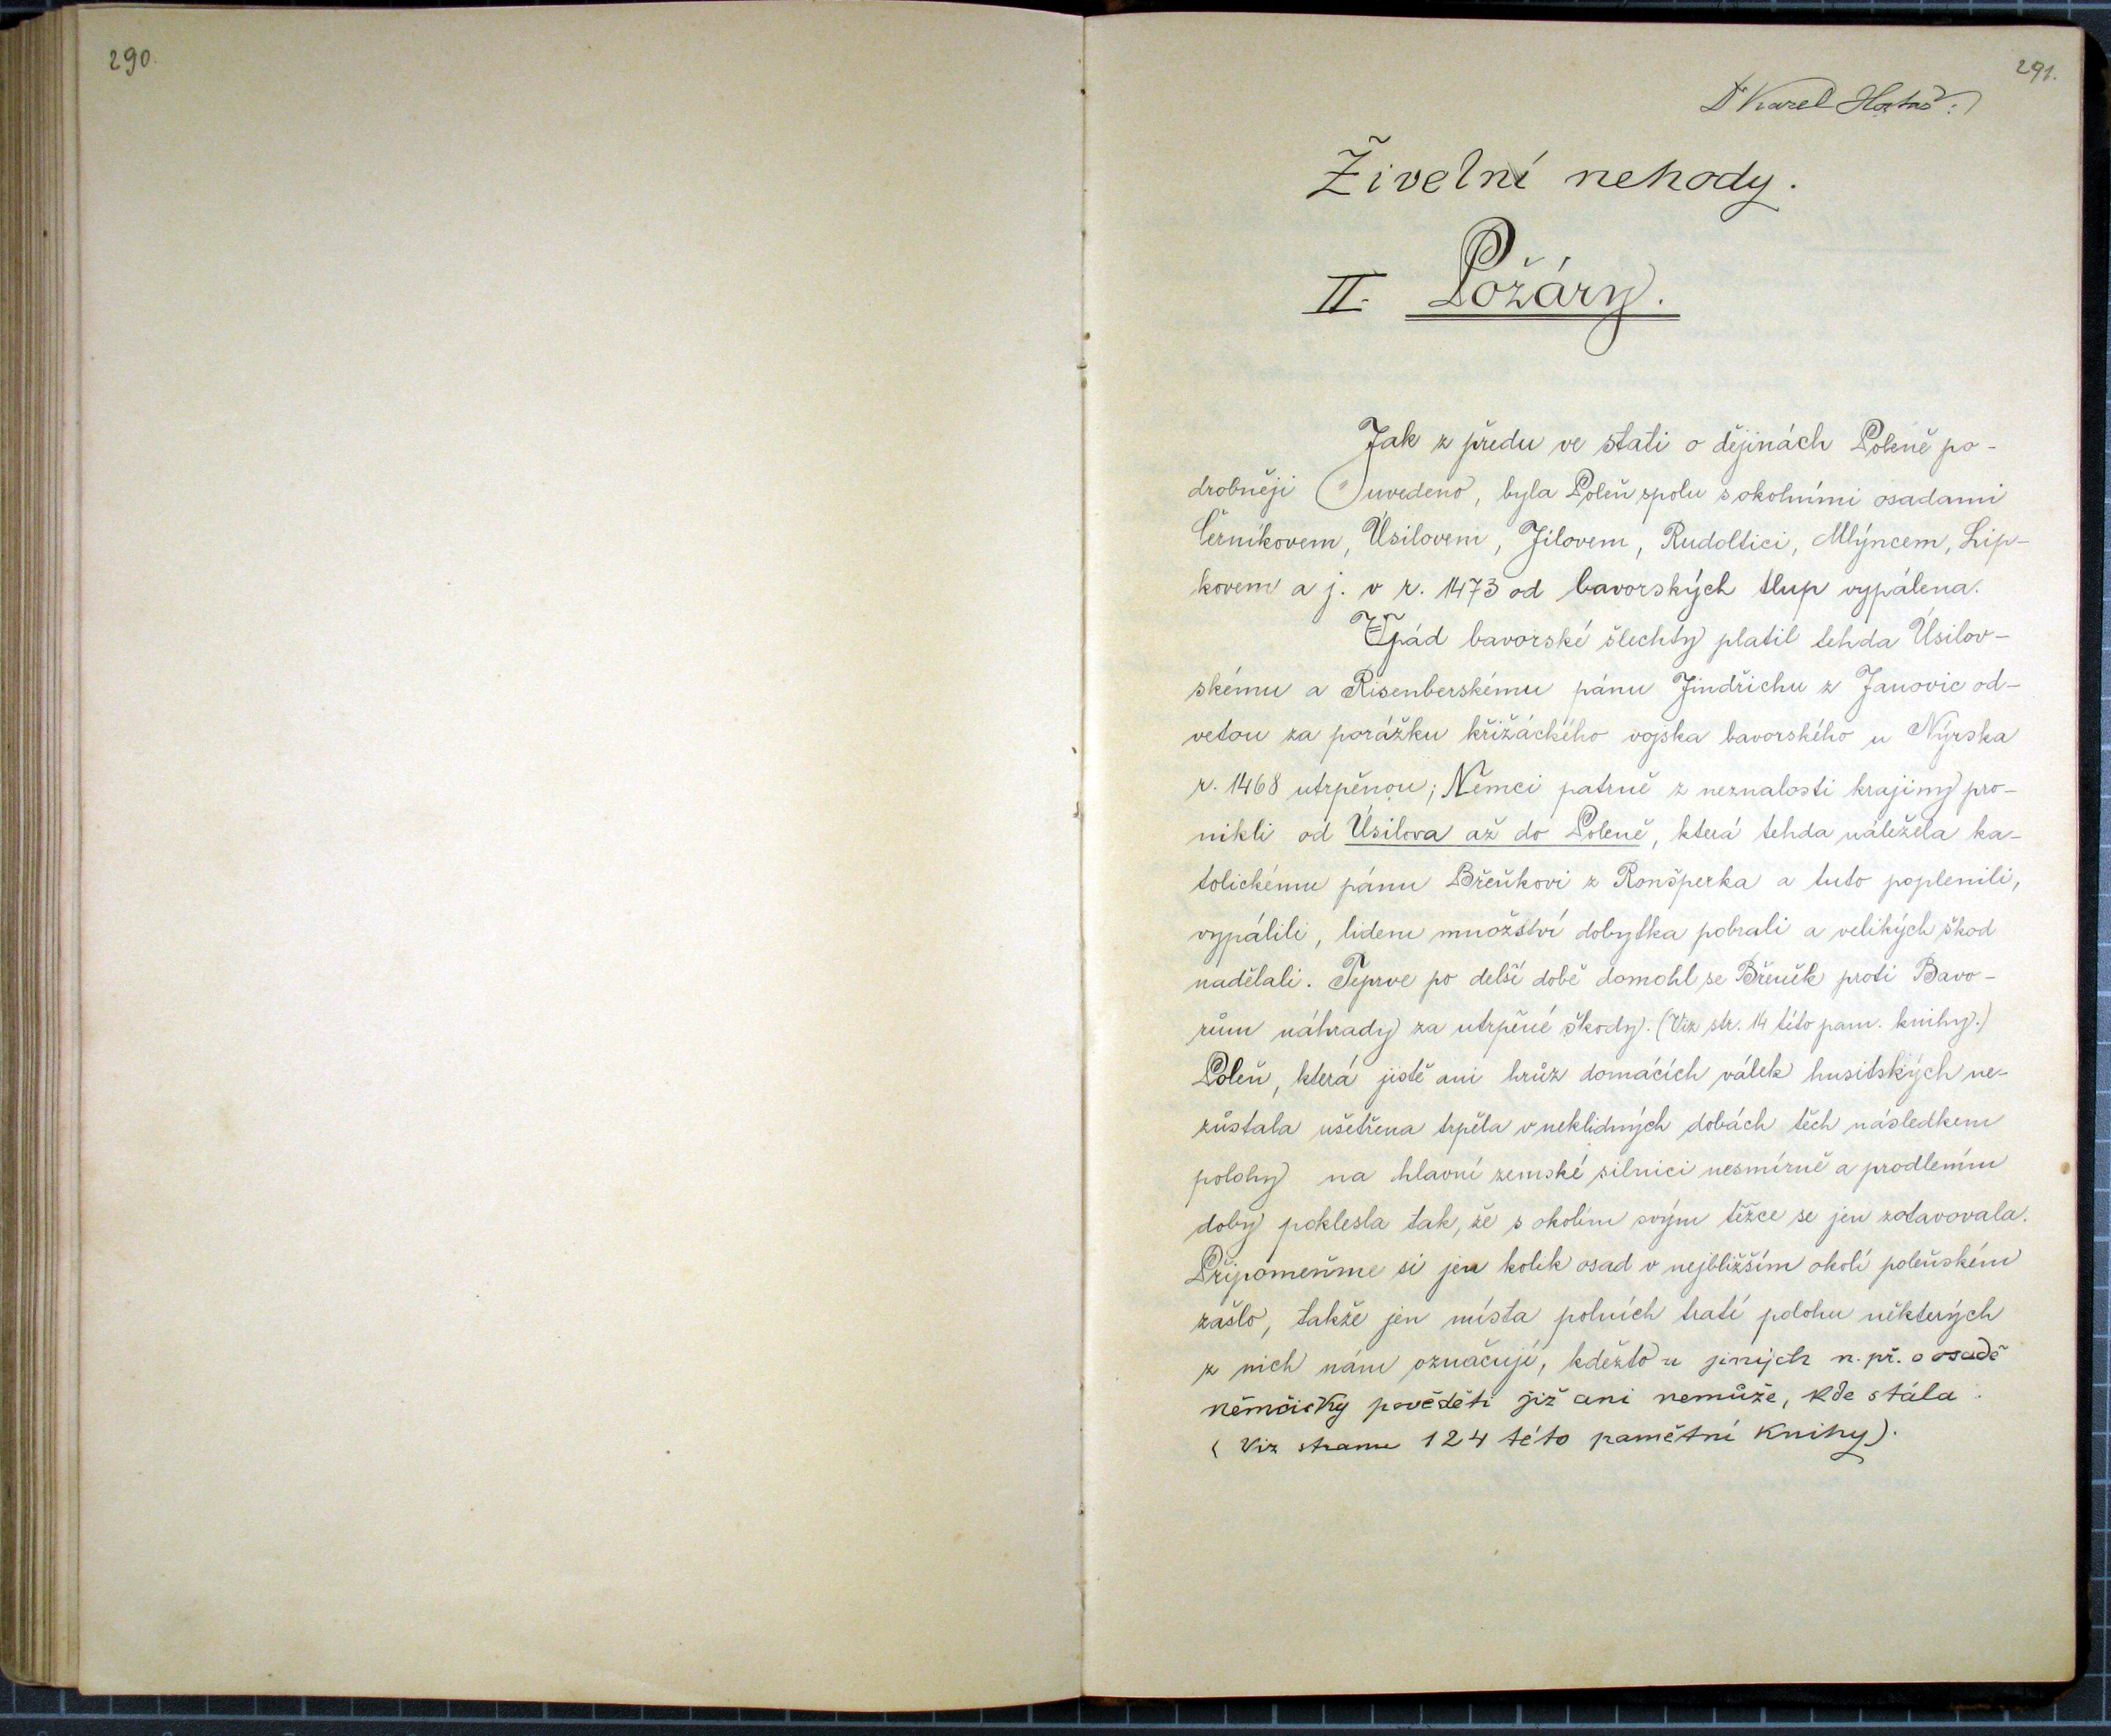 290.
291.
Dr Karel
Živelní nehody.
II. Požáry.
Jak z předu ve stati o dějinách Poleně po-
drobněji uvedeno, byla Poleň spolu s okolními osadami
Černíkovem, Úsilovem, Jílovem, Rudolticí, Mlýncem, Lip-
kovem a j. v r. 1473 od bavorských tlup vypálena.
Vpád bavorské šlechty platil tehda Úsilov-
skému a Risenberskému pánu Jindřichu z Janovic od-
vetou za porážku křižáckého vojska bavorského u Nýrska
r. 1468 utrpěnou; Němci patrně z neznalosti krajiny pro-
nikli od Úsilova až do Poleně, která tehda náležela ka-
tolickému pánu Břeňkovi z Ronšperka a tuto poplenili,
vypálili, lidem množství dobytka pobrali a velikých škod
nadělali. Teprve po delší době domohl se Břeněk proti Bavo-
rům náhrady za utrpěné škody. (Viz str. 14 této pam. knihy.)
Poleň, která jistě ani hrůz domácích válek husitských ne-
zůstala ušetřena trpěla v neklidných dobách těch následkem
polohy na hlavní zemské silnici nesmírně a prodlením
doby poklesla tak, že s okolím svým těžce se jen zotavovala.
Připomeňme si jen kolik osad v nejbližším okolí poleňském
zašlo, takže jen místa polních tratí polohu některých
z nich nám označují, kdežto u jiných n. př. o osadě
němčičky pověděti již ani nemůže, kde stála.
(Viz stranu 124 této pamětní knihy).